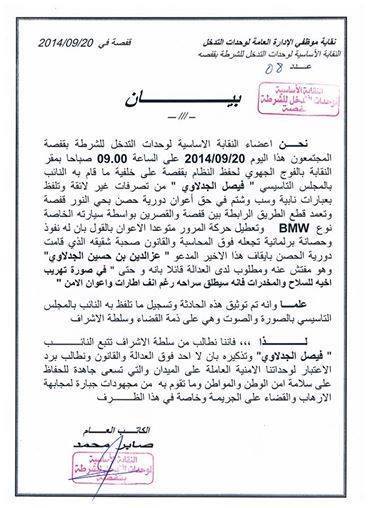 نقابة موظفي الإدارة العامة لوحدات التدخل
قفصة في 2014/09/20
النقابة الأساسية لوحدات التدخل للشرطة بقفصة
عدد 08
النقابة الأساسية
لوحدات التدخل للشرطة
بقفصة
بيـــان
--///--
نحـن اعضاء النقابة الاساسية لوحدات التدخل للشرطة بقفصة
المجتمعون هذا اليوم 2014/09/20 على الساعة 09.00 صباحا بمقر
النقابة بالفوج الجهوي لحفظ النظام بقفصة على خلفية ما قام به النائب
بالمجلس التاسيسي " فيصل الجدلاوي " من تصرفات غير لائقة وتلفظ
بعبارات نابية وسب وشتم في حق أعوان دورية حصن بحي النور قفصة
وتعمد قطع الطريق الرابطة بين قفصة والقصرين بواسطة سيارته الخاصة
نوع BMW وتعطيل حركة المرور متوعدا الاعوان بالقول بان له نفوذ
وحصانة برلمانية تجعله فوق المحاسبة والقانون صحبة شقيقه الذي قامت
دورية الحصن بايقاف هذا الاخير المدعو " عزالدين بن حسين الجدلاوي"
وهو مفتش عنه ومطلوب لدى العدالة قائلا بانه و حتى " في صورة تهريب
اخيه للسلاح والمخدرات فأنه سيطلق سراحه رغم انف اطارات واعوان الامن "
علمـا وانه تم توثيق هذه الحادثة وتسجيل ما تلفظ به النائب بالمجلس
التاسيسي بالصورة والصوت وهي على ذمة القضاء وسلطة الاشراف.
لـــذا ،،، فأننا نطالب من سلطة الاشراف تتبع النائـــب
" فيصل الجدلاوي" وتذكيره بان لا احد فوق العدالة والقانون ونطالب برد
الأعتبار لوحداتنا الامنية العاملة على الميدان والتي تسعى جاهدة للحفاظ
على سلامة امن الوطن والمواطن وما تقوم به من مجهودات جبارة لمجابهة
الارهاب والقضاء على الجريمة وخاصة في هذا الظـــرف
الكاتب العـام
صابر محمد
النقابة الأساسية
لوحدات التدخل للشرطة
بقفصة